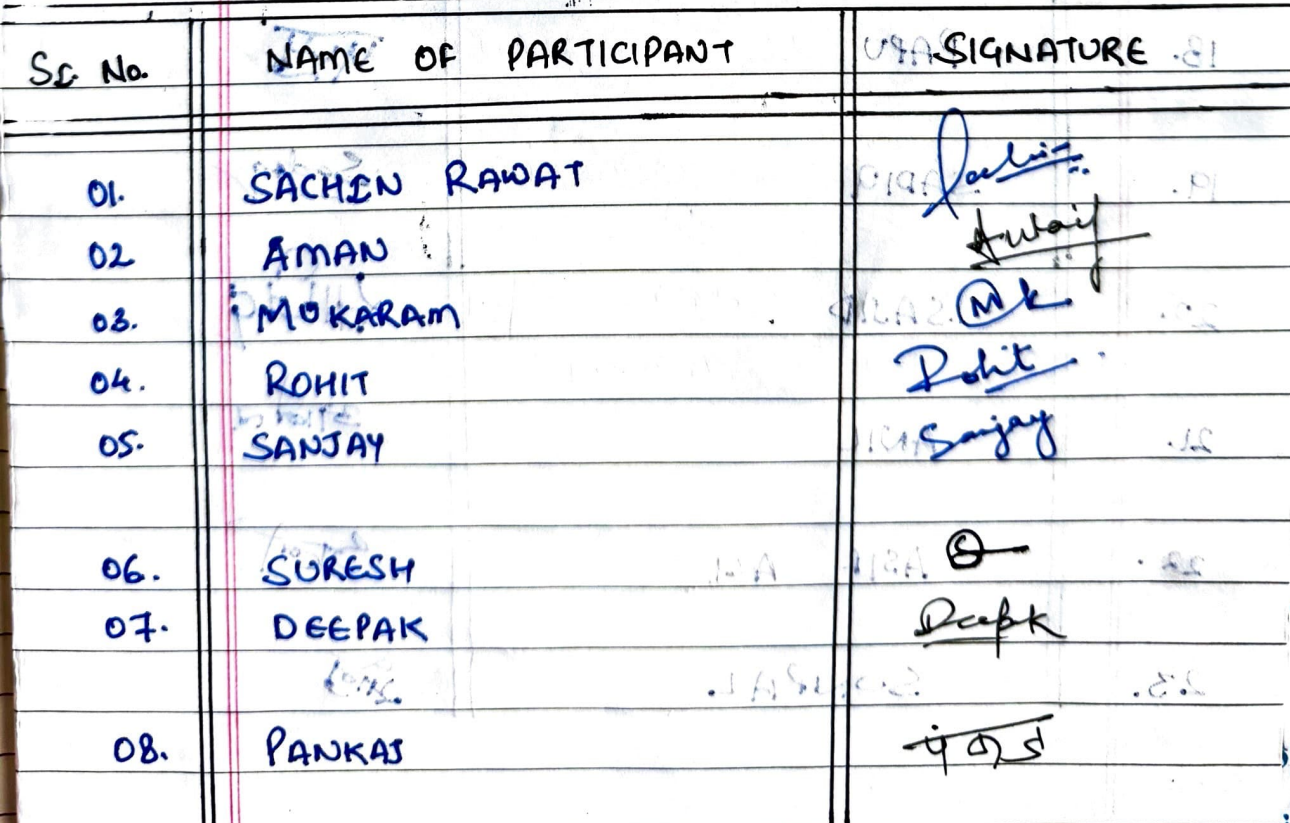 Sr. No. NAME OF PARTICIPANT SIGNATURE
01. SACHIN RAWAT
02 AMAN
03. MUKARAM MK
04. ROHIT Rohit
05. SANJAY Sanjay
06. SURESH S
07. DEEPAK Deepak
08. PANKAJ पंकज